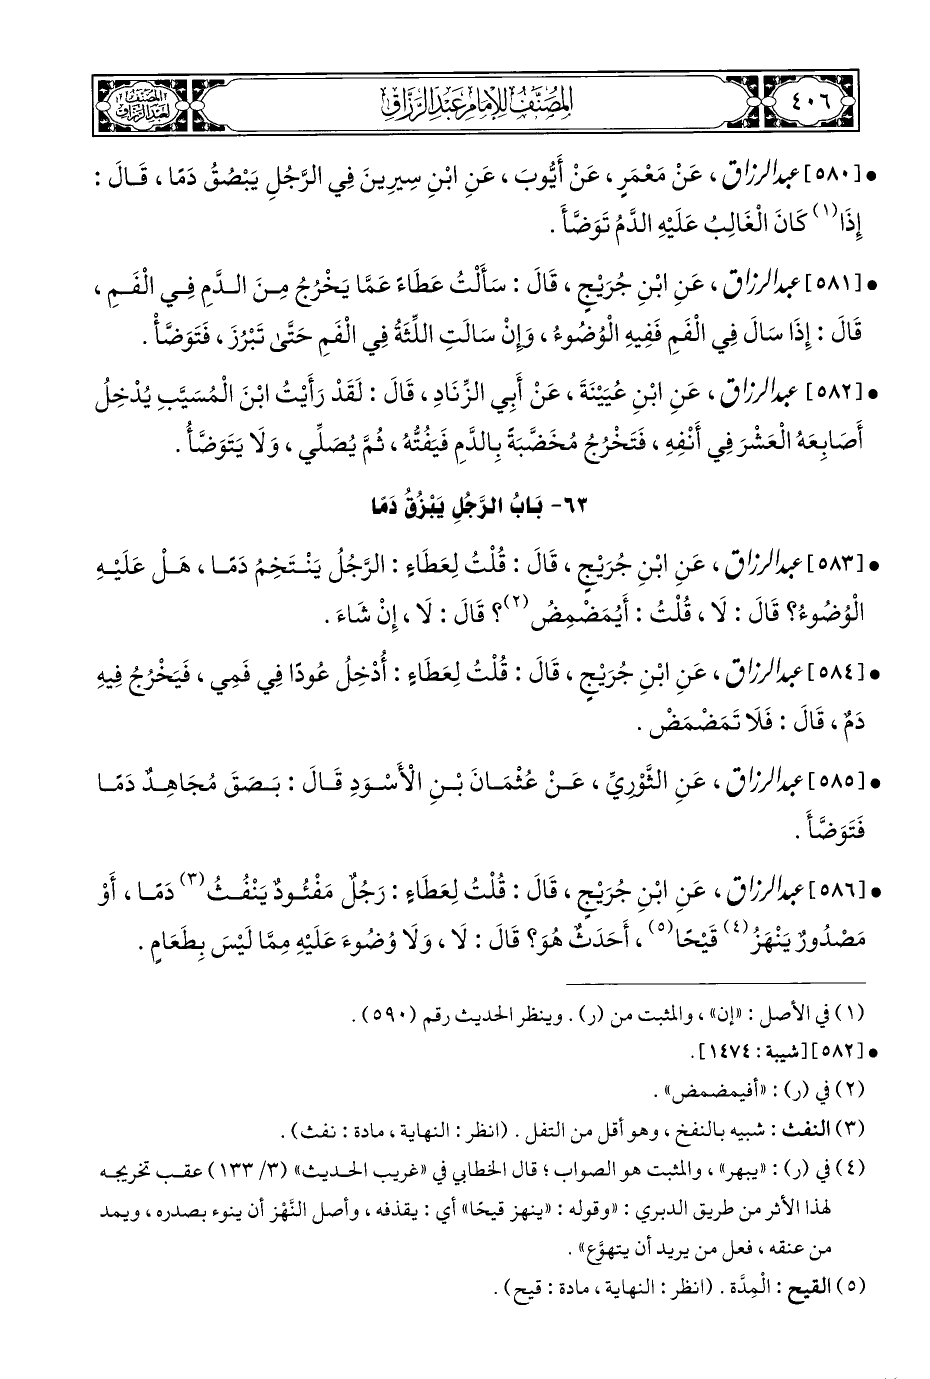 ٤٠٦
المصنف للإمام عبد الرزاق
المصنف لعبد الرزاق
• [٥٨٠] عبد الرزاق ، عَنْ مَعْمَرٍ ، عَنْ أَيُّوبَ ، عَنِ ابْنِ سِيرِينَ فِي الرَّجُلِ يَبْصُقُ دَمًا ، قَالَ :
إِذَا(١) كَانَ الْغَالِبُ عَلَيْهِ الدَّمُ تَوَضَّأَ .
• [٥٨١] عبد الرزاق ، عَنِ ابْنِ جُرَيْجٍ ، قَالَ : سَأَلْتُ عَطَاءً عَمَّا يَخْرُجُ مِنَ الدَّمِ فِي الْفَمِ ،
قَالَ : إِذَا سَالَ فِي الْفَمِ فَفِيهِ الْوُضُوءُ ، وَإِنْ سَالَتِ اللِّثَةُ فِي الْفَمِ حَتَّى تَبْرُزَ ، فَتَوَضَّأْ .
• [٥٨٢] عبد الرزاق ، عَنِ ابْنِ عُيَيْنَةَ ، عَنْ أَبِي الزِّنَادِ ، قَالَ : لَقَدْ رَأَيْتُ ابْنَ الْمُسَيَّبِ يُدْخِلُ
أَصَابِعَهُ الْعَشْرَ فِي أَنْفِهِ ، فَتَخْرُجُ مُخَضَّبَةً بِالدَّمِ فَيَفُتُّهُ ، ثُمَّ يُصَلِّي ، وَلَا يَتَوَضَّأُ .
٦٣- بَابُ الرَّجُلِ يَبْزُقُ دَمًا
• [٥٨٣] عبد الرزاق ، عَنِ ابْنِ جُرَيْجٍ ، قَالَ : قُلْتُ لِعَطَاءٍ : الرَّجُلُ يَنْتَخِمُ دَمًا ، هَلْ عَلَيْهِ
الْوُضُوءُ؟ قَالَ : لَا ، قُلْتُ : أَيُمَضْمِضُ(٢)؟ قَالَ : لَا ، إِنْ شَاءَ .
• [٥٨٤] عبد الرزاق ، عَنِ ابْنِ جُرَيْجٍ ، قَالَ : قُلْتُ لِعَطَاءٍ : أُدْخِلُ عُودًا فِي فَمِي ، فَيَخْرُجُ فِيهِ
دَمٌ ، قَالَ : فَلَا تَمَضْمَضْ .
• [٥٨٥] عبد الرزاق ، عَنِ الثَّوْرِيِّ ، عَنْ عُثْمَانَ بْنِ الْأَسْوَدِ قَالَ : بَصَقَ مُجَاهِدٌ دَمًا
فَتَوَضَّأَ .
• [٥٨٦] عبد الرزاق ، عَنِ ابْنِ جُرَيْجٍ ، قَالَ : قُلْتُ لِعَطَاءٍ : رَجُلٌ مَفْئُودٌ يَنْفُثُ(٣) دَمًا ، أَوْ
مَصْدُورٌ يَنْهَزُ(٤) قَيْحًا(٥) ، أَحَدَثٌ هُوَ؟ قَالَ : لَا ، وَلَا وُضُوءَ عَلَيْهِ مِمَّا لَيْسَ بِطَعَامٍ .
(١) في الأصل : «إن» ، والمثبت من (ر) . وينظر الحديث رقم (٥٩٠) .
• [٥٨٢][شيبة : ١٤٧٤] .
(٢) في (ر) : «أفيمضمض» .
(٣) النفث : شبيه بالنفخ ، وهو أقل من التفل . (انظر : النهاية ، مادة : نفث) .
(٤) في (ر) : «يبهر» ، والمثبت هو الصواب ؛ قال الخطابي في «غريب الحديث» (٣/ ١٣٣) عقب تخريجه
لهذا الأثر من طريق الدبري : «وقوله : «ينهز قيحًا» أي : يقذفه ، وأصل النَّهْز أن ينوء بصدره ، ويمد
من عنقه ، فعل من يريد أن يتهوَّع» .
(٥) القيح : الْمِدَّة . (انظر : النهاية ، مادة : قيح) .